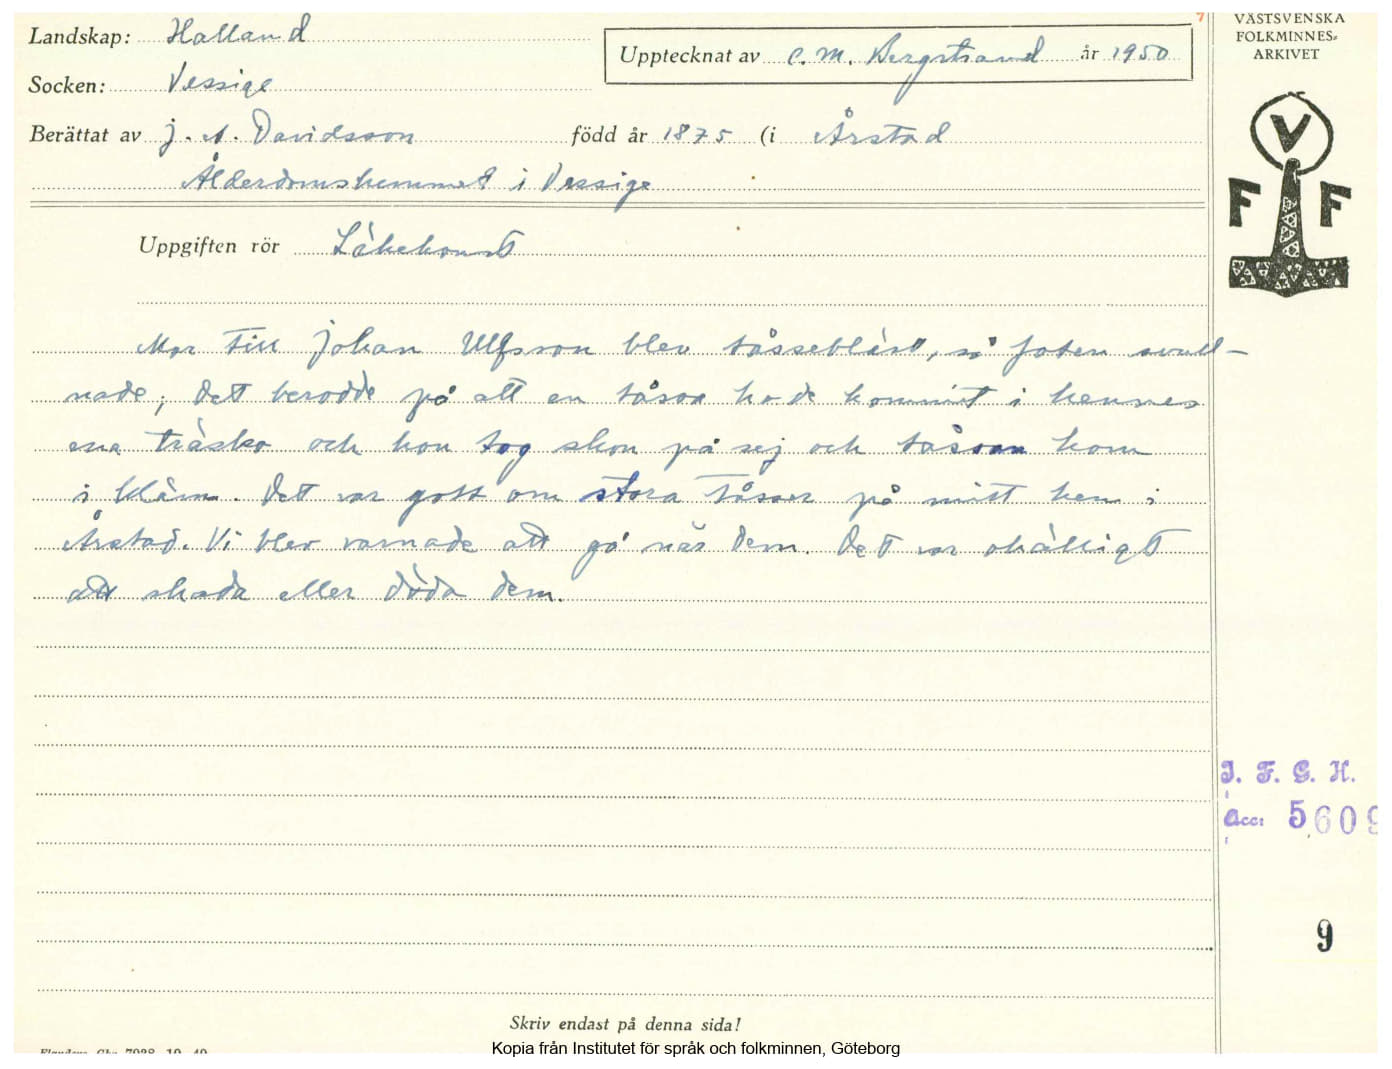 Landskap: Halland
Upptecknat av C. M. Bergstrand år 1950
VÄSTSVENSKA
FOLKMINNES-
ARKIVET
Socken: Vessige
Berättat av J. A. Davidsson född år 1875 (i Årstad
Ålderdomshemmet i Vessige
V
F F
Uppgiften rör Läkekonst
Mor till Johan Ulfsson blev tåsseblåst, så foten svull-
nade; det berodde på att en tåssa hade kommit i hennes
ena träsko och hon tog skon på sej och tåssan kom
i kläm. Det var gott om stora tåssor på mitt hem i
Årstad. Vi blev varnade att gå när dem. Det var ohälligt
att skada eller döda dem.
I. F. G. H.
Acc: 5609
9
Skriv endast på denna sida!
Kopia från Institutet för språk och folkminnen, Göteborg